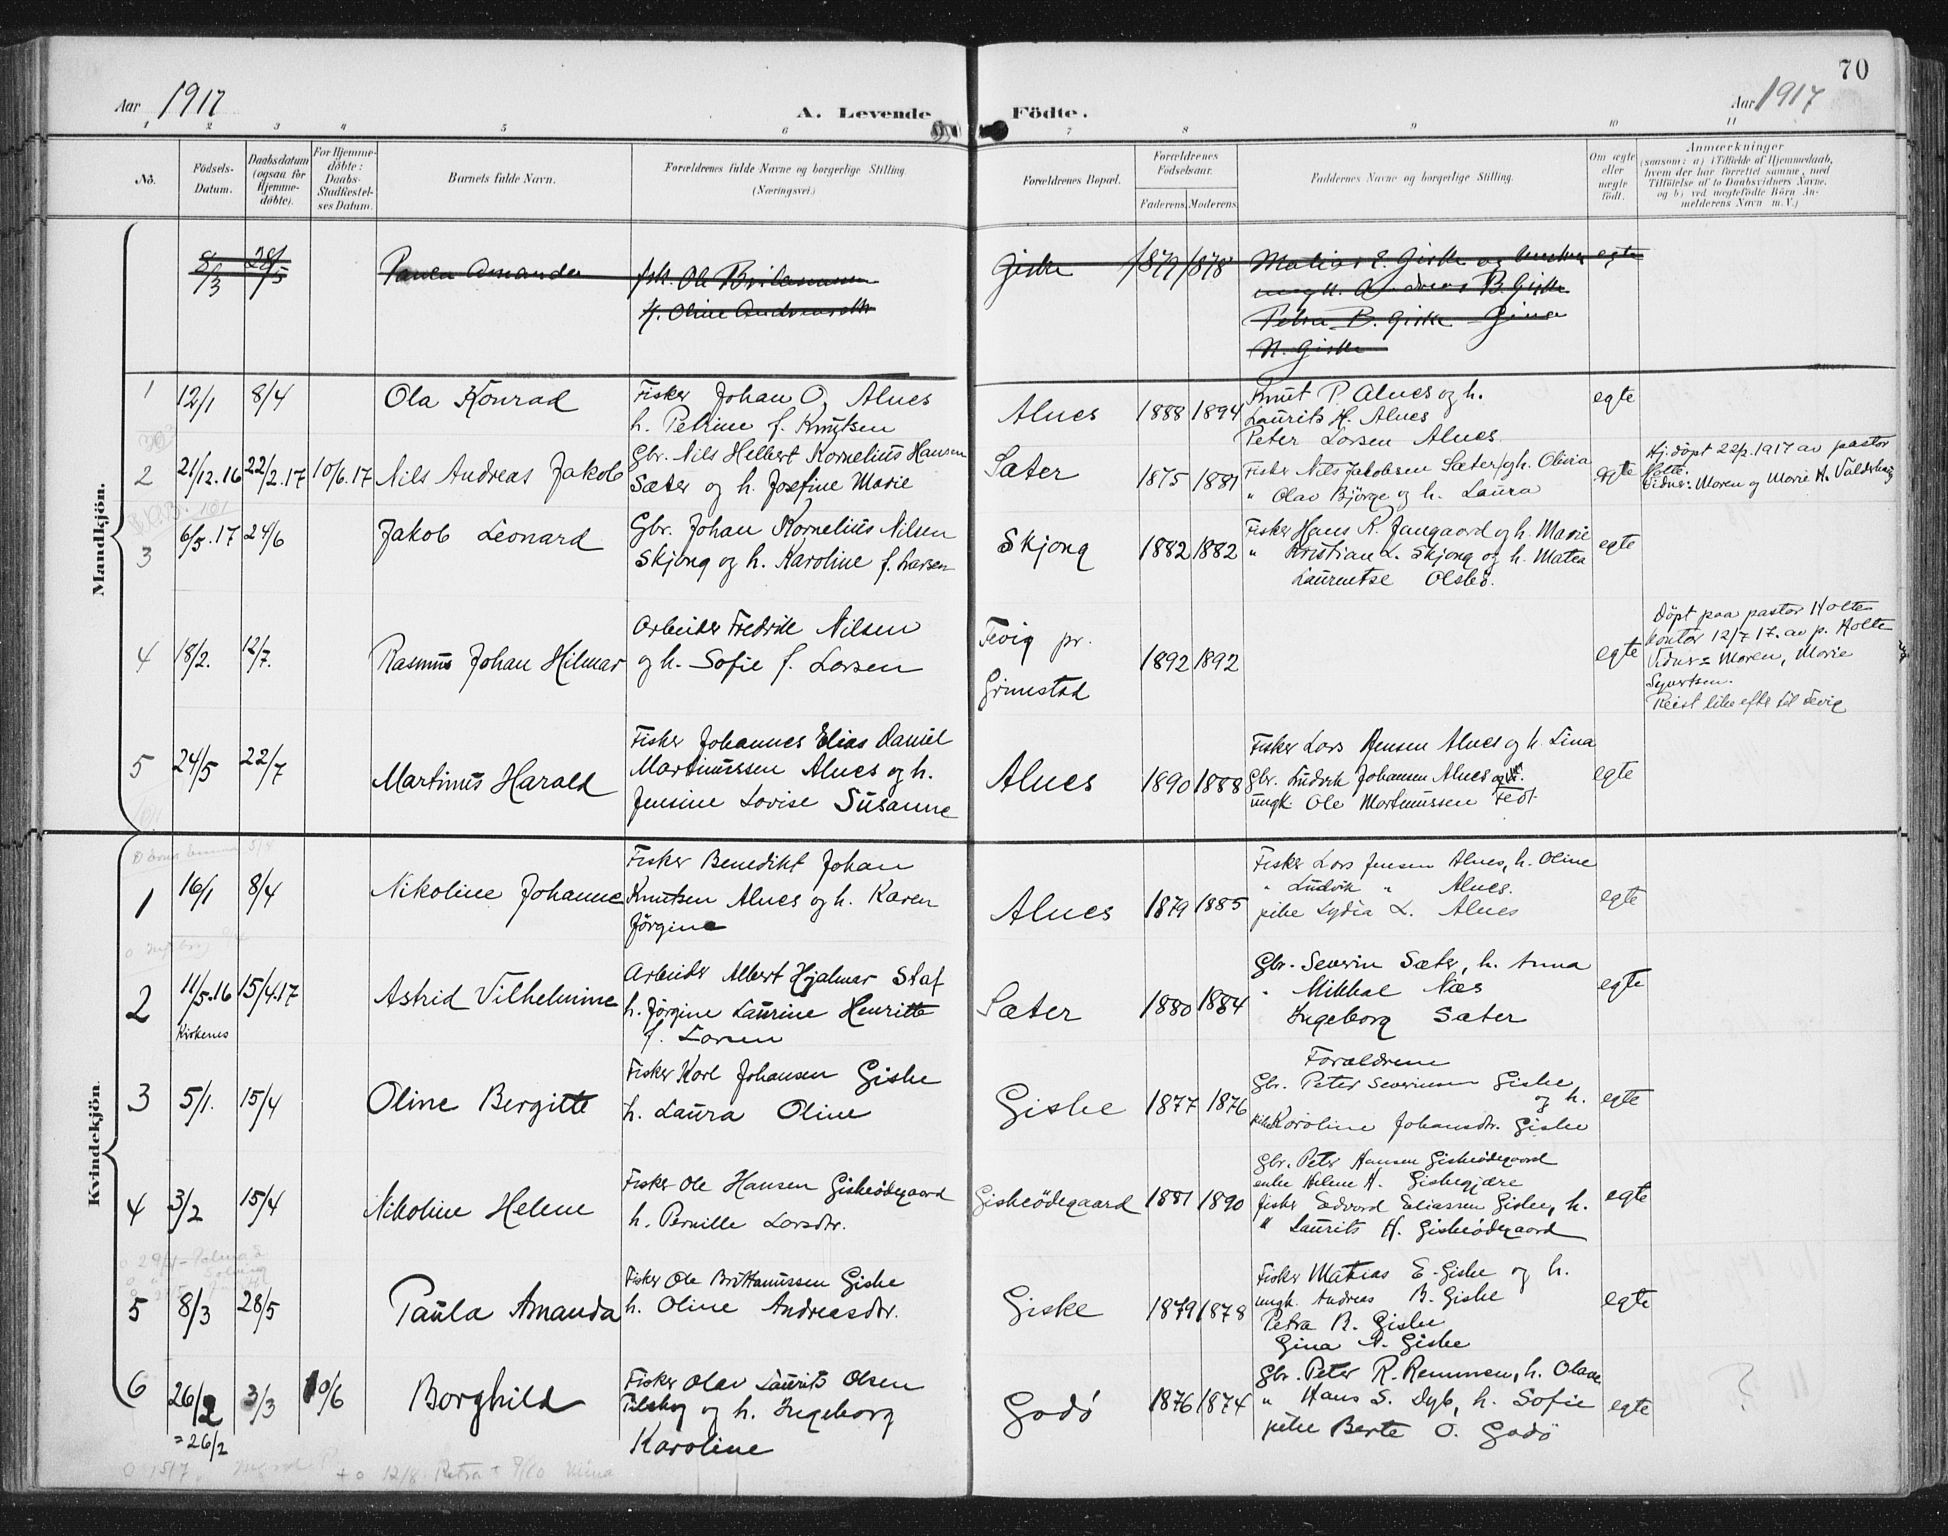 70
Aar 1917
A. Levende Födte.
Aar 1917
1 2 3 4 5 6 7 8 9 10 11
No.
Födsels-Datum.
Daabsdatum (ogsaa for Hjemme-döbte).
For Hjemme-döbte: Daabs-Stadfæstel-ses Datum.
Barnets fulde Navn.
Forældrenes fulde Navne og borgerlige Stilling. (Næringsvei.)
Forældrenes Bopæl.
Forældrenes Födselsaar.
Faderens. Moderens.
Faddernes Navne og borgerlige Stilling.
Om ægte eller uægte födt.
Anmærkninger
(saasom: a) i Tilfælde af Hjemmedaab,
hvem der har forrettet samme, med
Tilföielse af to Daabsvidners Navne.
og b) ved uægtefödte Börn An-
melderens Navn m. V.)
Mandkjön.
8/3 28/5 Paula Amanda fisk. Ole Brittanussen Giske 1879 1878 Matias E. Giske og hustru egte
h. Oline Andreasdtr ungk. Andreas B. Giske
Petra B. Giske Gina
N. Giske
1 12/1 8/4 Ola Konrad Fisker Johan O. Alnes Alnes 1888 1894 Knut P. Alnes og h. egte
h. Petrine f. Knutsen Laurits H. Alnes
Peter Larsen Alnes.
2 21/12.16 22/2.17 10/6.17 Nils Andreas Jakob Gbr. Nils Helbert Kornelius Hansen Sæter 1875 1881 Fisker Nils Jakobsen Sæter og h. Olivia egte Hj. döpt 22/2 1917 av pastor
Sæter og h. Josefine Marie " Olav Bjørge og h. Laura Holte.
Vidner: Moren og Marie H. Valderhaug
3 6/5.17 24/6 Jakob Leonard Gbr. Johan Kornelius Nilsen Skjong 1882 1882 Fisker Hans K. Jangaard og h. Marie egte
Skjong og h. Karoline f. Larsen " Kristian L. Skjong og h. Matea
Laurentse Olsbö.
4 18/2. 12/7. Rasmus Johan Hilmar Arbeider Fredrik Nilsen Fevig pr. 1892 1892 egte Döpt paa pastor Holtes
og h. Sofie f. Larsen Grimestad kontor 12/7 17. av p. Holte
Vidner: Moren, Marie
Sjurtsen.
Reist like efter til Fevig
5 24/5 22/7 Martinus Harald Fisker Johannes Elias Daniel Alnes 1890 1888 Fisker Lars Jensen Alnes og h. Lina egte
Martinussen Alnes og h. Gbr. Ludvik Johansen Alnes og h.
Jensine Lovise Susanne ungk. Ole Martinussen
Kvindekjön.
1 16/1 8/4 Nikoline Johanne Fisker Benedikt Johan Alnes 1879 1885 Fisker Lars Jensen Alnes, h. Oline egte
Knutsen Alnes og h. Karen " Ludvik " Alnes.
Jörgine pike Lydia L. Alnes
2 11/5.16 15/4.17 Astrid Vilhelmine Arbeider Albert Hjalmar Staf Sæter 1880 1884 Gbr. Severin Sæter, h. Anna egte
Kirkenes h. Jörgine Laurine Henritte " Mikkal Næs
f. Larsen Ingeborg Sæter
3 5/1. 15/4 Oline Bergitte Fisker Karl Johansen Giske Giske 1877 1876 Foraldrene egte
h. Laura Oline Gbr. Peter Severinsen Giske
og h.
pike Karoline Johansdtr. Giske
4 3/2 15/4 Nikoline Helene Fisker Ole Hansen Giskeödegaard Giskeödegaard 1881 1890 Gbr. Peter Hansen Giskeödegaard egte
h. Pernille Larsdtr. enke Helene H. Giskegjære
fisker Edvard Eliassen Giske, h.
" Laurits H. Giskeödegaard
5 8/3 28/5 Paula Amanda Fisker Ole Brittanussen Giske Giske 1879 1878 Fisker Matias E. Giske og h. egte
h. Oline Andreasdtr. ungk. Andreas B. Giske
Petra B. Giske
Gina N. Giske
6 26/2 3/3 10/6 Borghild Fisker Olav Laurits Olsen Godö 1876 1874 Gbr. Peter R. Remmen, h. Olave egte
= 26/2 og h. Ingeborg " Hans S. Dyb, h. Sofie
Karoline pike Berte O. Godö